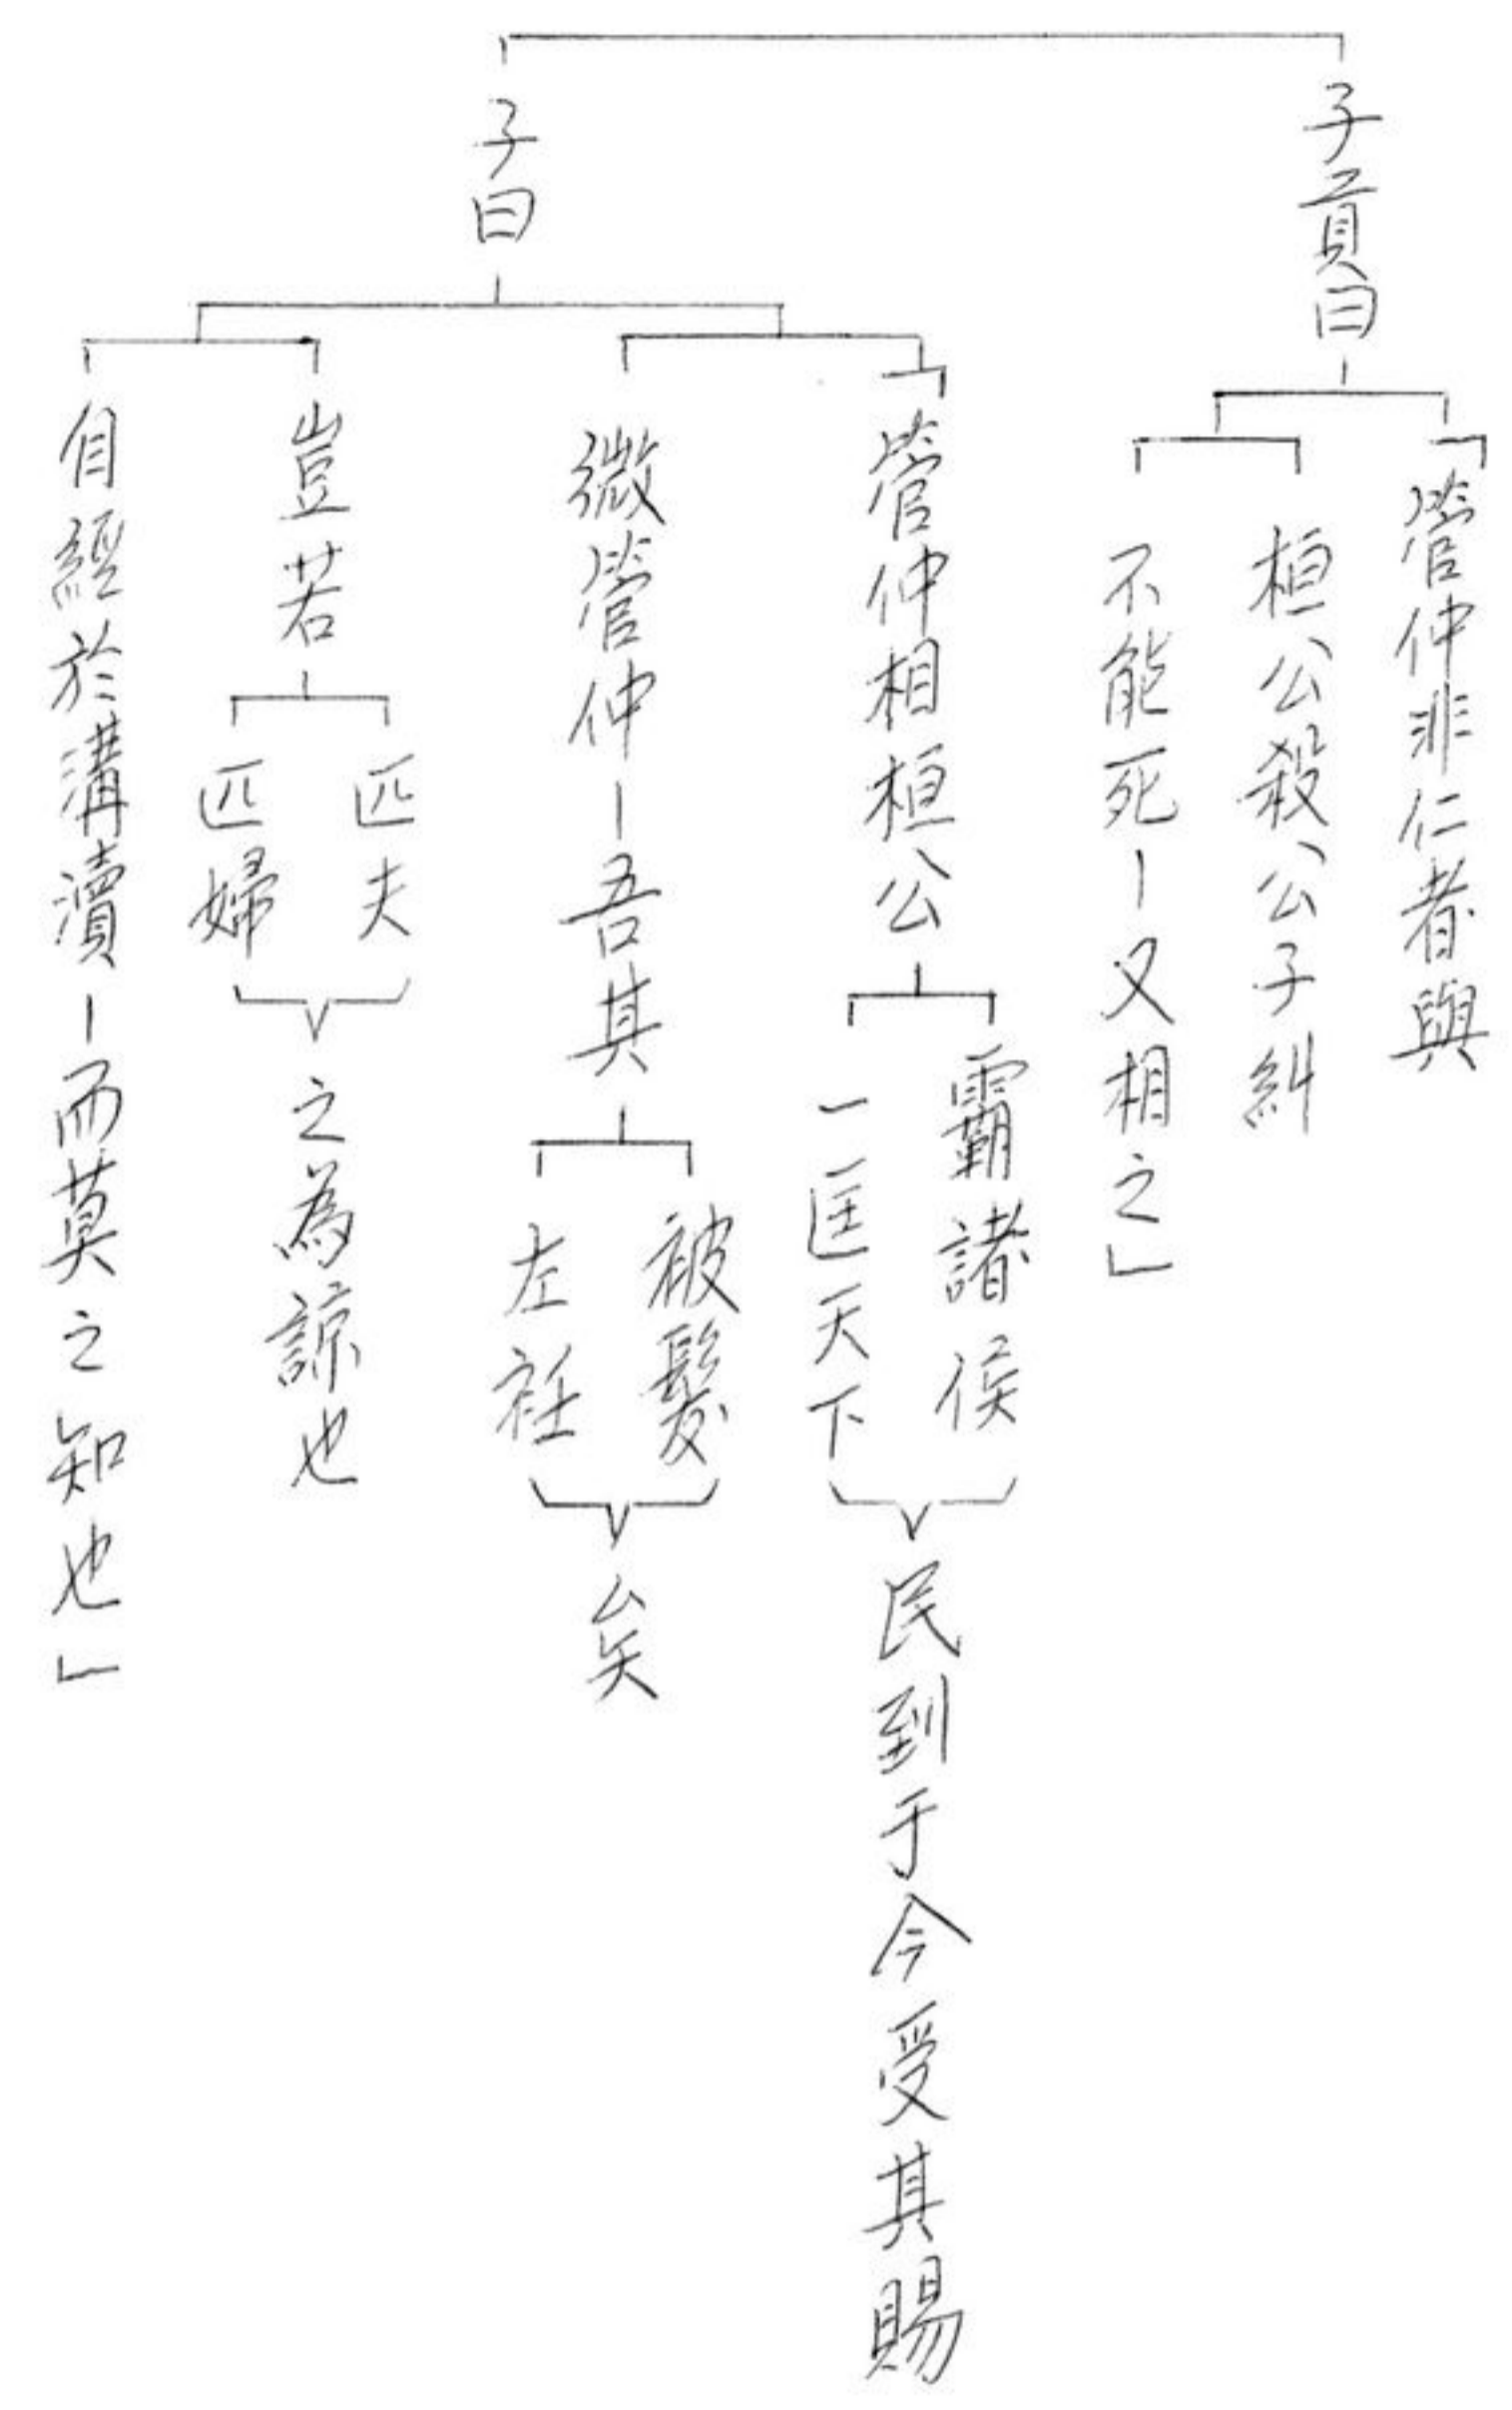 子貢曰
「管仲非仁者與
桓公殺公子糾
不能死－又相之」
子曰
「管仲相桓公
霸諸侯
一匡天下
民到于今受其賜
微管仲－吾其
被髮
左衽
矣
豈若
匹夫
匹婦
之為諒也
自經於溝瀆－而莫之知也」